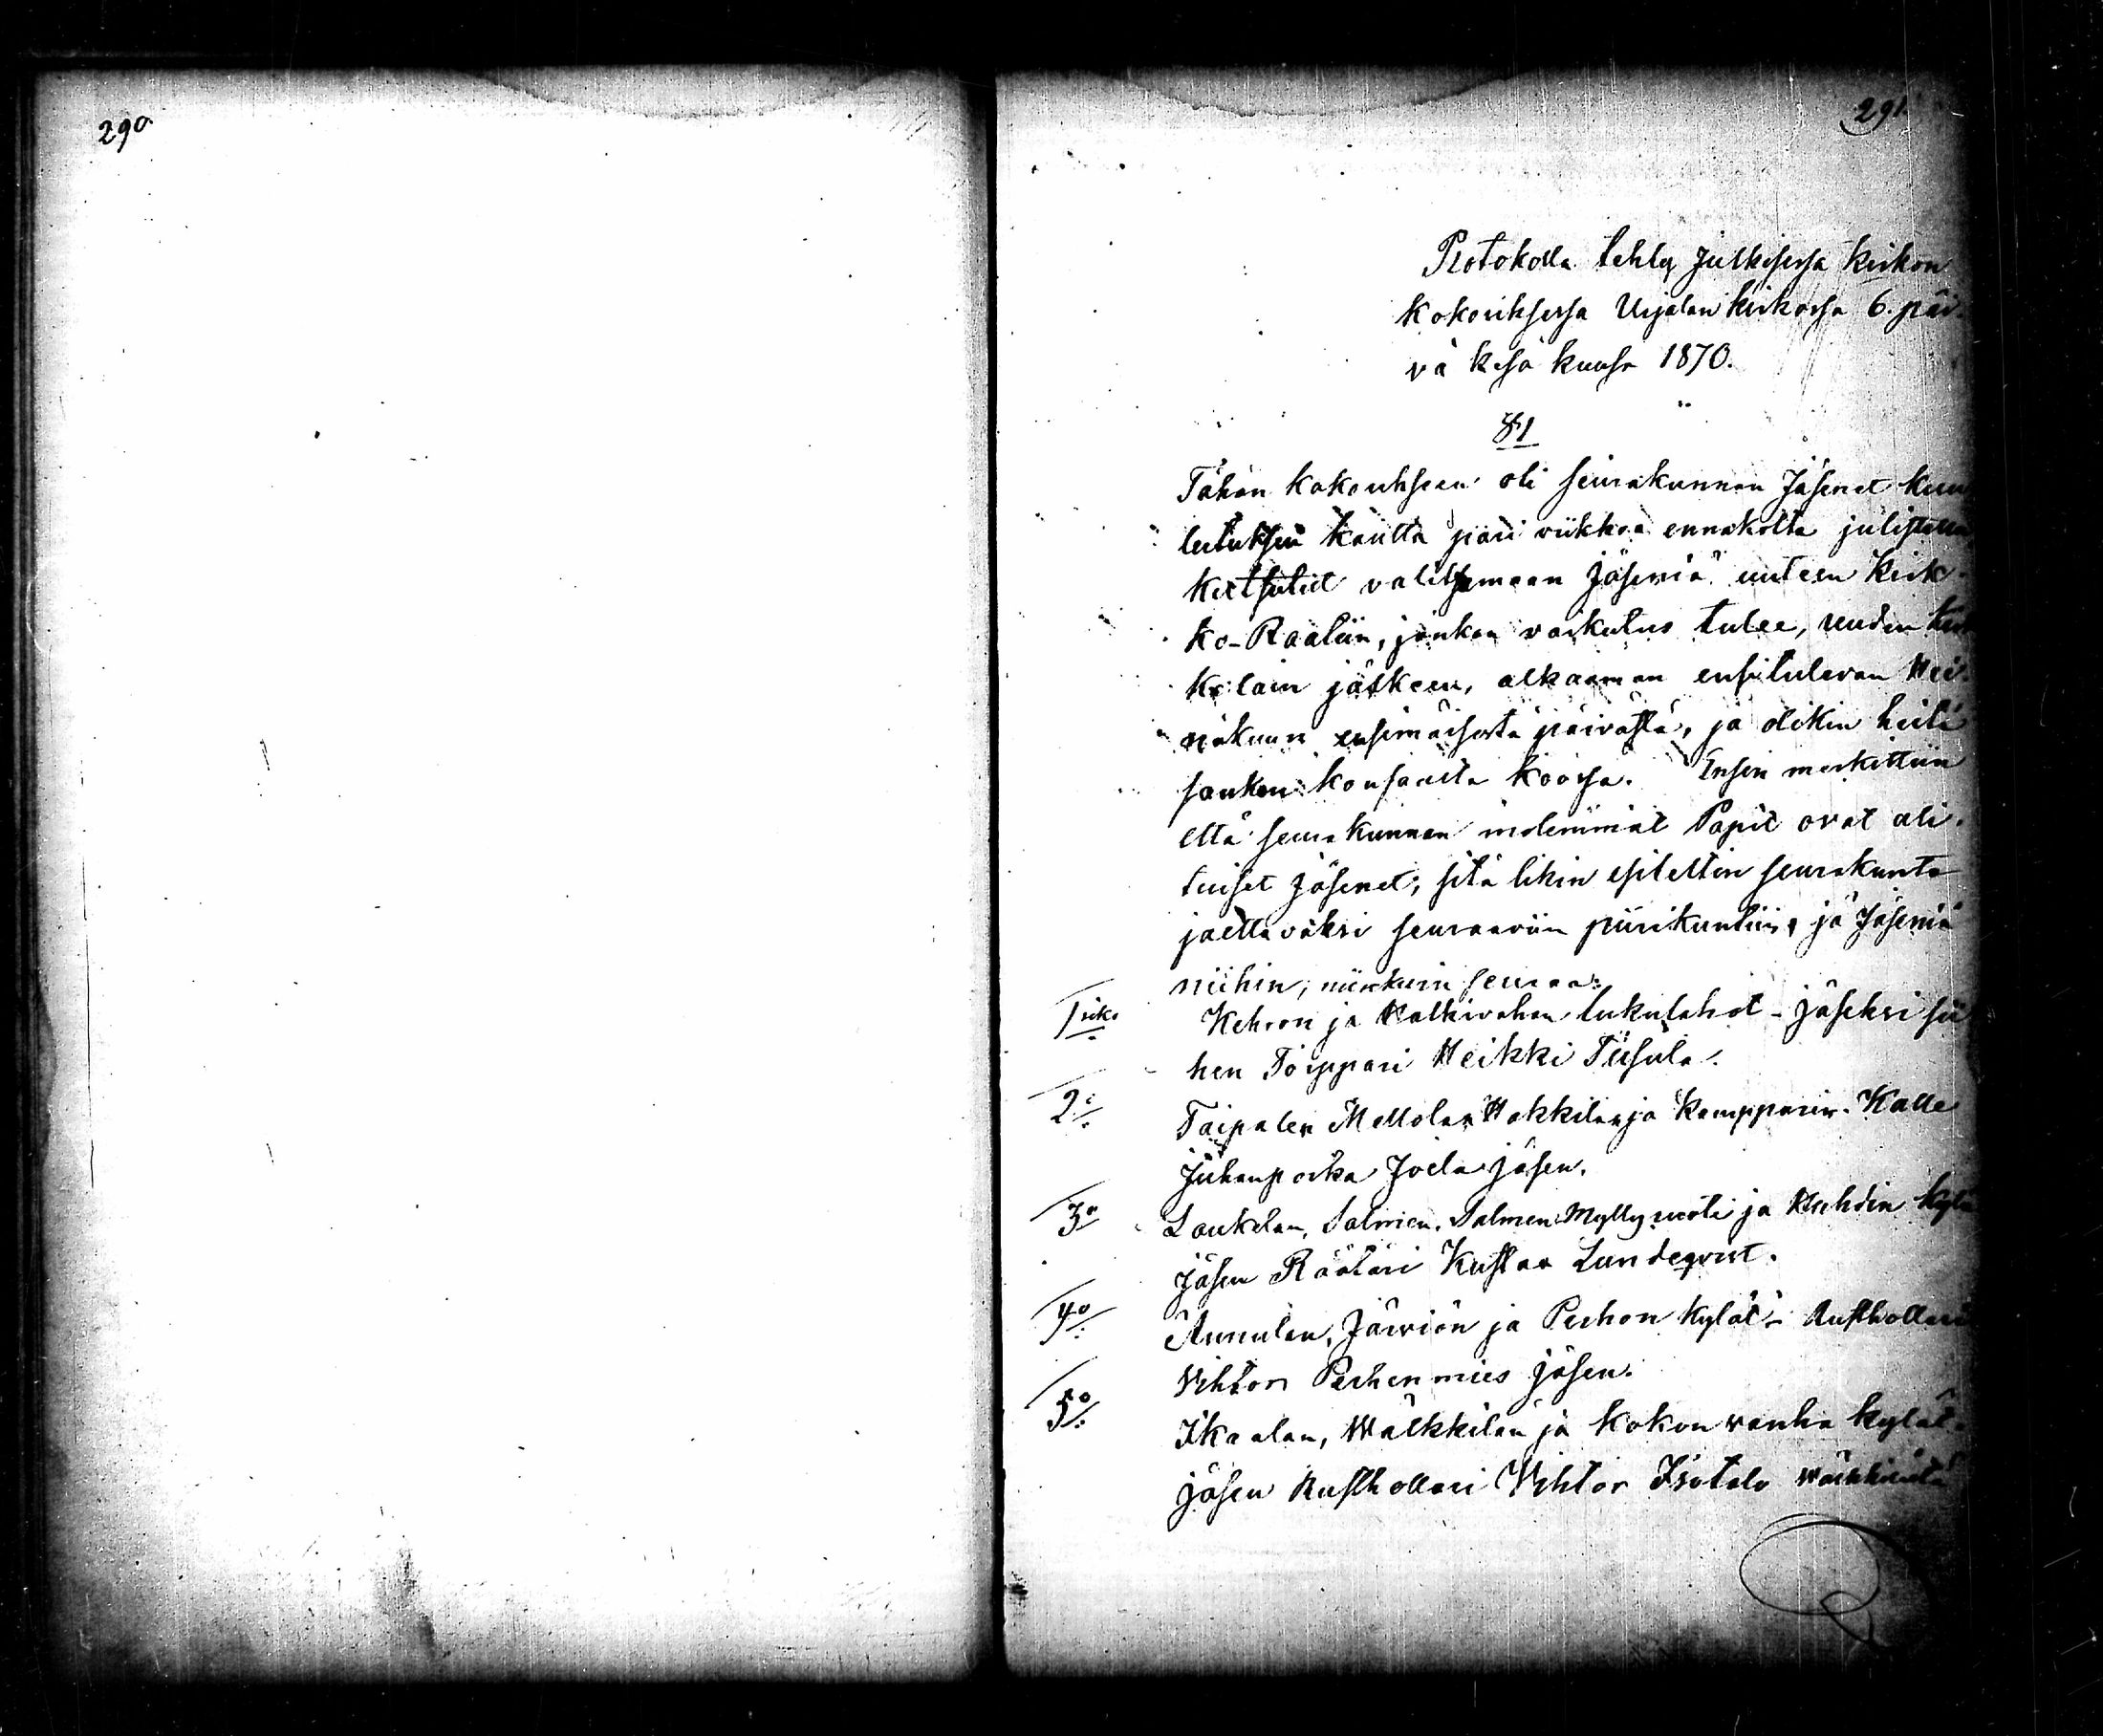 290
291
Protokolla tehty Julkisessa kirkon
kokouksessa Urjalan kirkossa 6. päi-
vä kesä kuusa 1870.
§1
Tähän kokouksen oli seurakunnan Jäsenet kuu
lutuksen kautta pari viikkoa ennakolta julistettu
kutsutut valitsemaan Jäseniä uuteen Kirk-
ko-Raatiin, jonkan vaikutus tulee, uuden kirk
ko lain jälkeen, alkaaman ensitulevan Hei-
näkuun ensimäisestä päivästä, ja olikin heitä
joukon kousauta koossa. Ensin merkittiin
että seurakunnan molemmat Papit ovat ali-
tuiset jäsenet; sitä likin esitettin seurakunta
jaettavaksi seuraaviin piirikuntiin, ja Jäseniä
niihin, niinkuin seuraa:
1siks Kehron ja Halkivahan lukulahot - jäseksi sii
hen Torppari Heikki Tiisula.
2o Taipalen Mellolan Hakkilan ja Kampparin. Kalle
Juhanpoika Joela jäsen.
3o Laukelan, Salmen, Salmen Myllymaati ja Huhdin kylä
jäsen Räätäri Kustaa Lundeqvist.
4o Annulan, Järviön ja Perhon kylät - Rusthollari
Vihtori Perhenmies jäsen.
5o Ikaalan, Wälkkilän ja Kokon vanha kylät.
jäsen Rusthollari Vihtor Isotalo Wälkkilästä